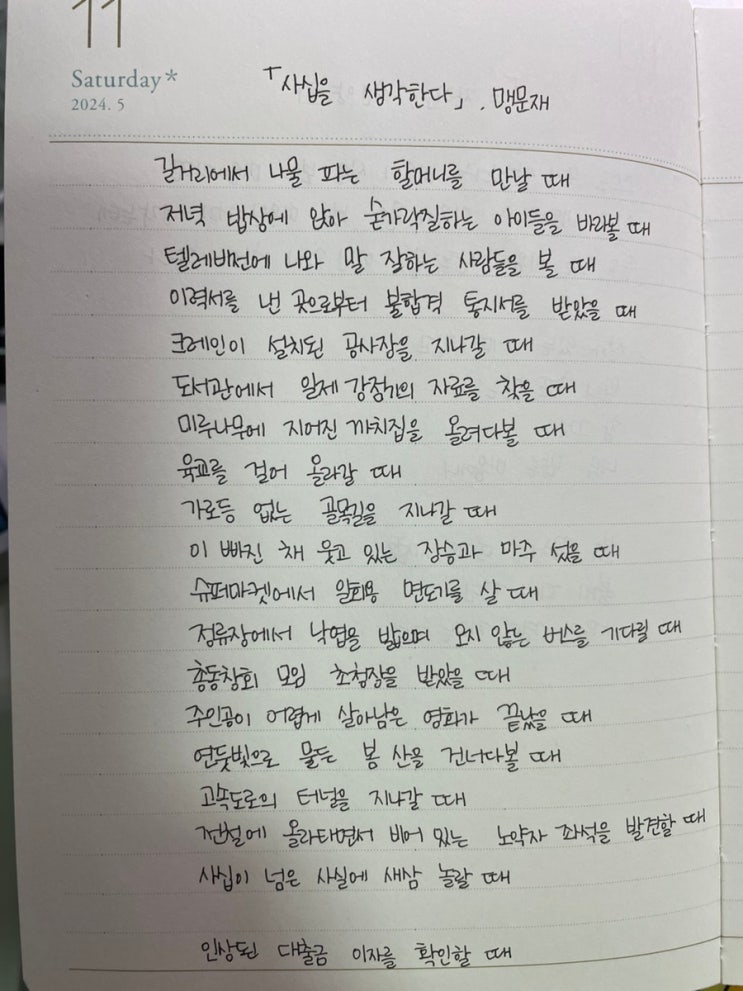 11
Saturday*
2024. 5
「사십을 생각한다」. 맹문재
길거리에서 나물 파는 할머니를 만날 때
저녁 밥상에 앉아 숟가락질하는 아이들을 바라볼 때
텔레비전에 나와 말 잘하는 사람들을 볼 때
이력서를 낸 곳으로부터 불합격 통지서를 받았을 때
크레인이 설치된 공사장을 지나갈 때
도서관에서 일제 강점기의 자료를 찾을 때
미루나무에 지어진 까치집을 올려다볼 때
육교를 걸어 올라갈 때
가로등 없는 골목길을 지나갈 때
이 빠진 채 웃고 있는 장승과 마주 섰을 때
슈퍼마켓에서 일회용 면도기를 살 때
정류장에서 낙엽을 밟으며 오지 않는 버스를 기다릴 때
총동창회 모임 초청장을 받았을 때
주인공이 어렵게 살아남은 영화가 끝났을 때
연둣빛으로 물든 봄 산을 건너다볼 때
고속도로의 터널을 지나갈 때
전철에 올라타면서 비어 있는 노약자 좌석을 발견할 때
사십이 넘은 사실에 새삼 놀랄 때
인상된 대출금 이자를 확인할 때